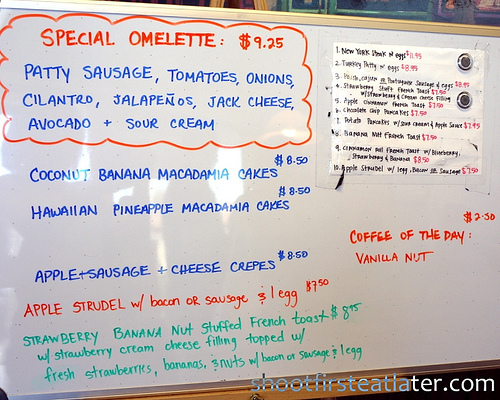 SPECIAL OMELETTE: $9.25
PATTY SAUSAGE, TOMATOES, ONIONS,
CILANTRO, JALAPEÑOS, JACK CHEESE,
AVOCADO + SOUR CREAM
COCONUT BANANA MACADAMIA CAKES $8.50
HAWAIIAN PINEAPPLE MACADAMIA CAKES $8.50
APPLE+SAUSAGE + CHEESE CREPES $8.50
APPLE STRUDEL w/ bacon or sausage & 1 egg $7.50
STRAWBERRY BANANA Nut Stuffed French toast $8.95
w/ strawberry cream cheese filling topped w/
fresh strawberries, bananas, & nuts w/ bacon or sausage & 1 egg
1. New York Steak n eggs $11.95
2. Turkey Patty n' eggs $8.95
3. Polish, cajun or Portuguese Sausage n eggs $8.95
4. Strawberry Stuff French Toast $7.50
w/ Strawberry & Cream cheese filling
5. Apple Cinnamon French Toast $7.50
6. Chocolate chip Pancakes $7.50
7. Potato Pancakes w/ Sour cream & Apple Sauce $7.95
8. Banana Nut French Toast $7.50
9. Cinnamon Nut French Toast w/ Blueberry,
Strawberry & Banana $8.50
10. Apple Strudel w/ 1 egg, Bacon or Sausage $7.50
$2.50
COFFEE OF THE DAY:
VANILLA NUT
shootfirsteatlater.com